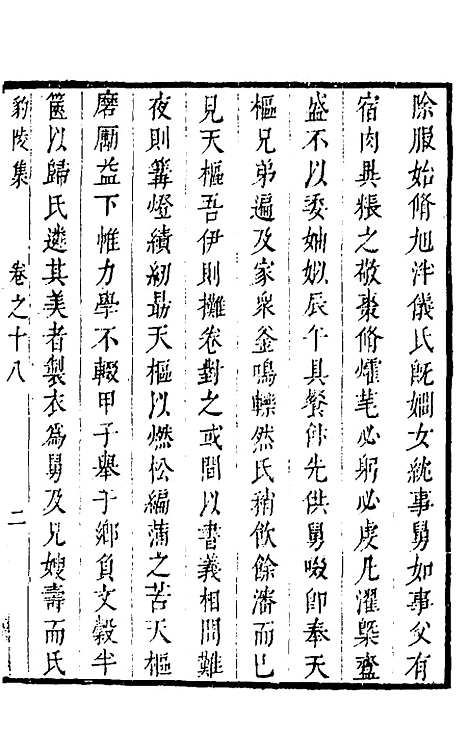 除服始脩旭泮儀氏旣嫺女紞事舅如事父有
宿肉具粻之敬棗脩爟芼必躬必虔凡濯槩齍
盛不以委妯娰辰午具餐饎先供舅啜卽奉天
樞兄弟遍及家衆釜鳴轑然氏稍飮餘瀋而已
見天樞吾伊則攤卷對之或間以書義相問難
夜則篝燈績紉勗天樞以燃松編蒲之苦天樞
磨勵益下帷力學不輟甲子舉于鄉負文縠半
篋以歸氏遴其美者製衣爲舅及兄嫂壽而氏
豹陵集 卷之十八 二